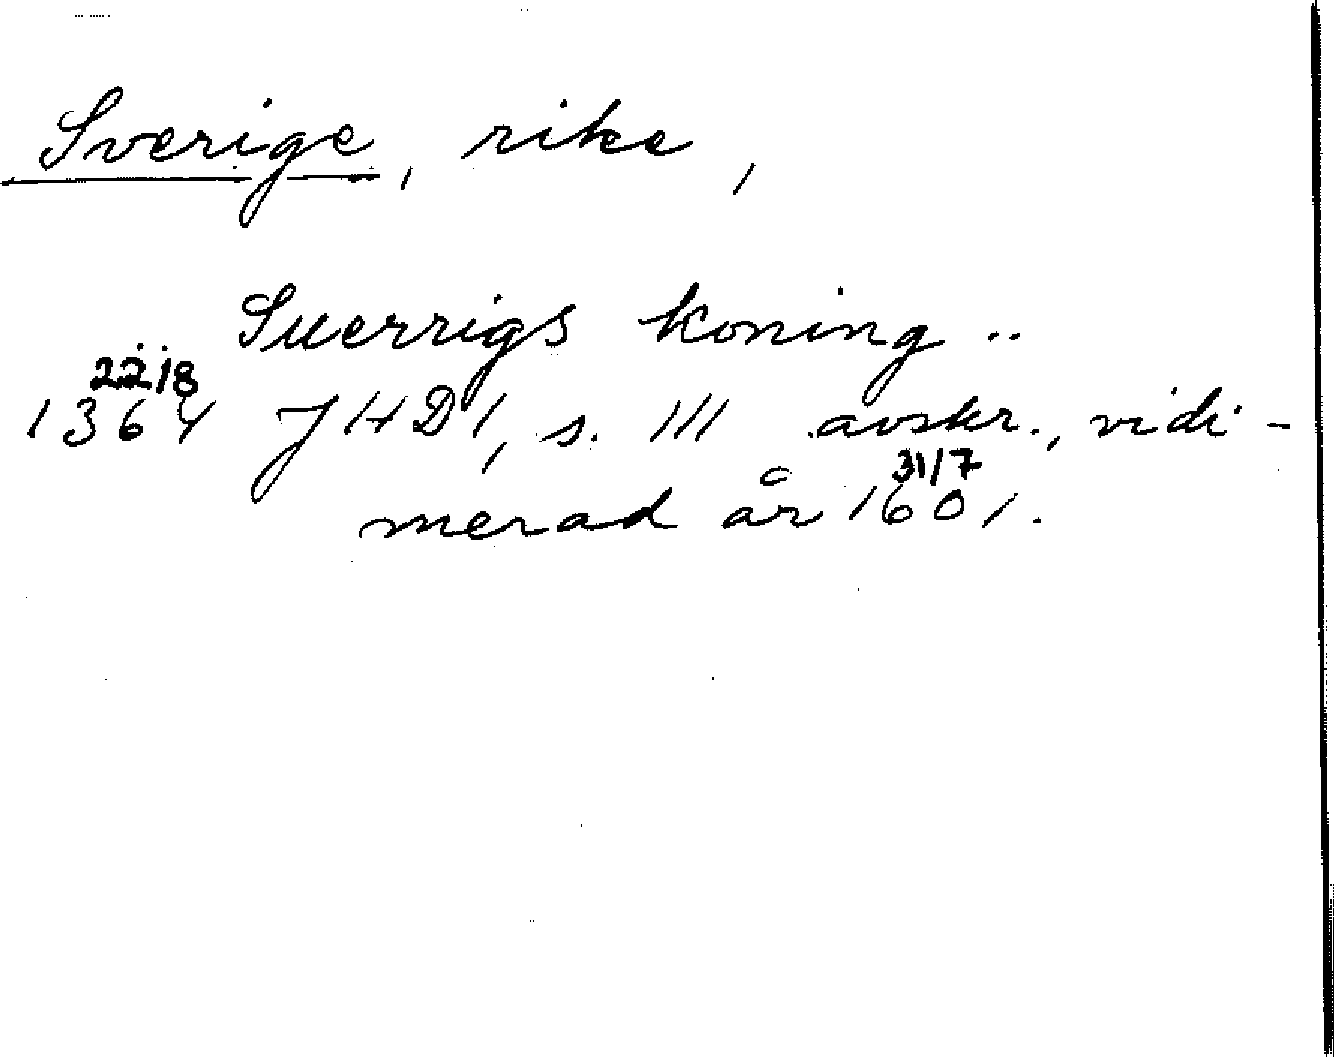 Sverige, rike,
Suerrigs koning ..
22/8
1364 JHD 1, s. 111 avskr., vidi-
31/7
merad år 1601.